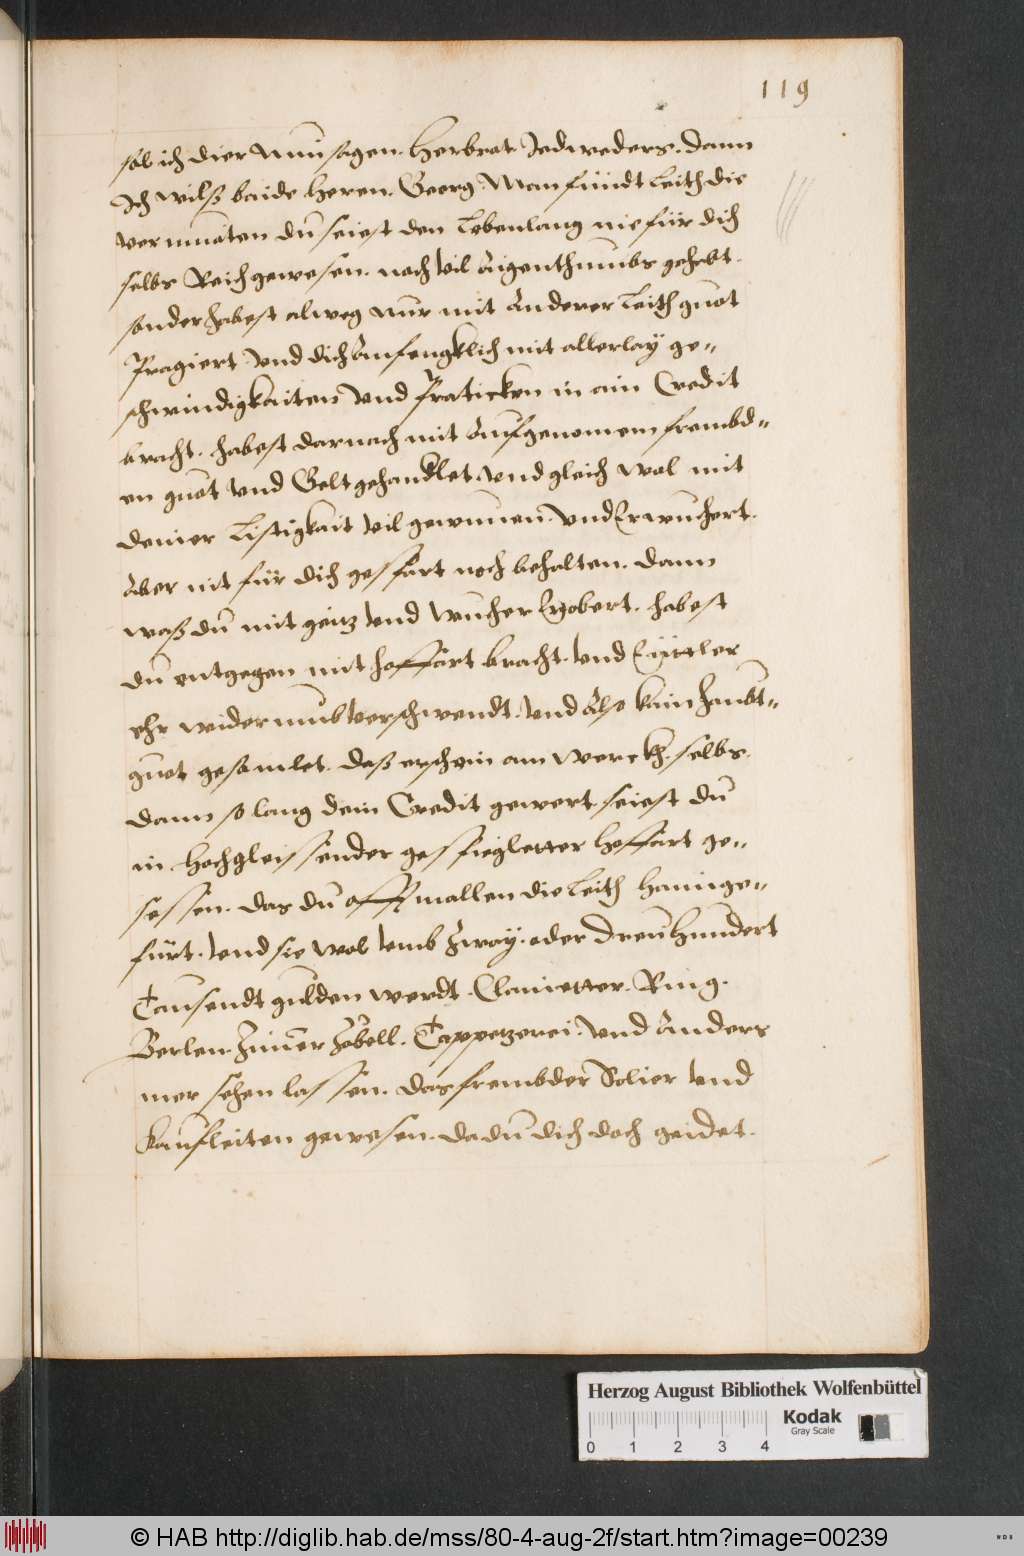 119
sol ich dier nun sagen. Herbrot Jedweders. dann
Ich wilß baide heren. Georg. Man findt Leith die
vermuoten du seiest dein Lebenlang nie für dich
selbs Reich gewesen. noch vil Aigenthumbs gehabt.
sonder habest alweg nur mit Anderer Leith guot
Pragiert. Vnd dich Anfengklich mit allerlay ge„
schwindigkaiten Vnd Praticken in ain Credit
bracht. habest darnach mit Aufgenomem frembd„
en guot Vnd Gelt gehandlet. Vnd gleich wol mit
deiner Listigkait vil gewunnen. Vnd Erwuchert.
Aber nit für dich gespart noch behalten. dann
waß du mit geitz Vnd Wucher Erobert. habest
du entgegen mit hoffart bracht. Vnd Eyttler
ehr widerumb verschwendt. Vnd Also kain haubt„
guot gesamlet. daß erschein am werckh. selbs.
dann so lang dein Credit gewert. seiest du
in hochgleissender gespiegletter hoffart ge„
sessen. das du offtmallen die Leith haimge„
fürt. Vnd sie wol vmb Zway. oder dreuhundert
Tausendt gulden werdt. Clainetter. Ring.
Berlen. Zimer Zobell. Tappetzerei. Vnd Anders
mer sehen lassen. das frembder Solier Vnd
kaufleiten gewesen. da du dich doch geidet.
Herzog August Bibliothek Wolfenbüttel
Kodak
Gray Scale
0 1 2 3 4
© HAB http://diglib.hab.de/mss/80-4-aug-2f/start.htm?image=00239